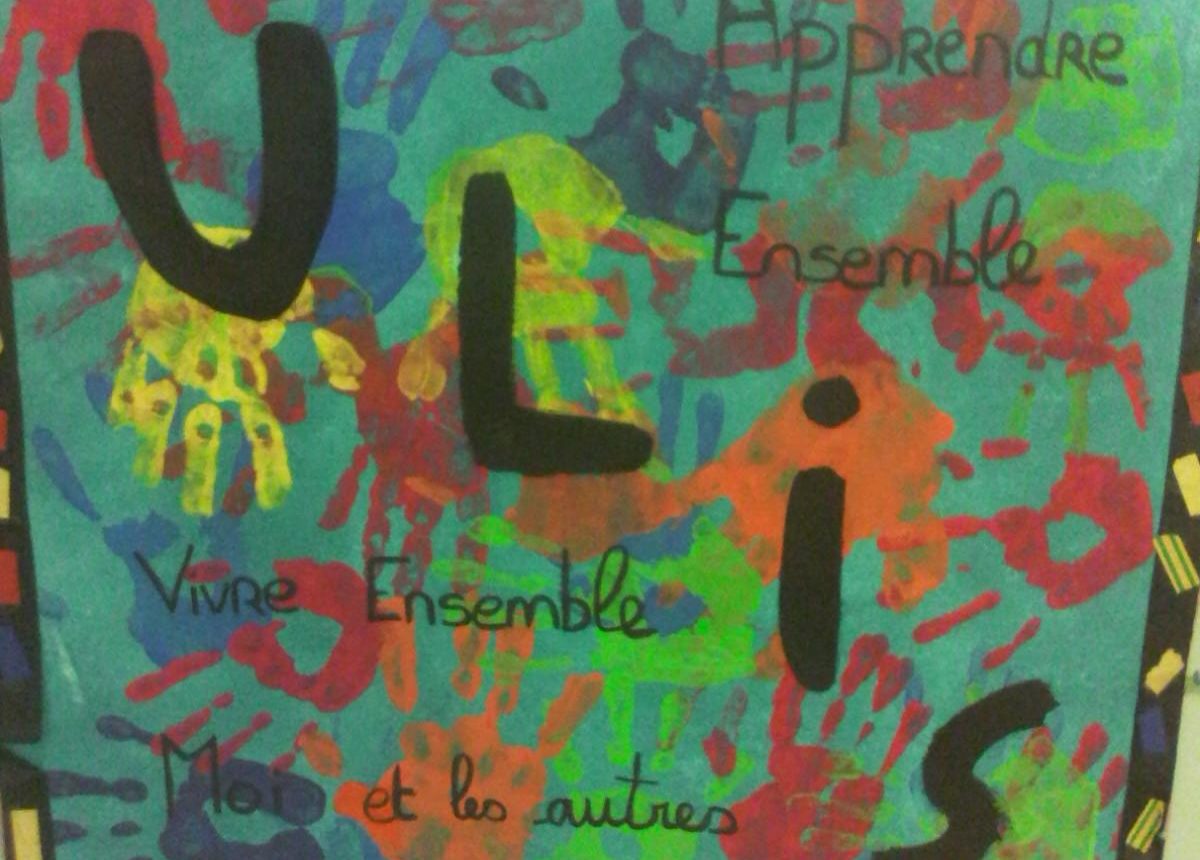 ULiS
Apprendre
Ensemble
Vivre Ensemble
Moi et les autres